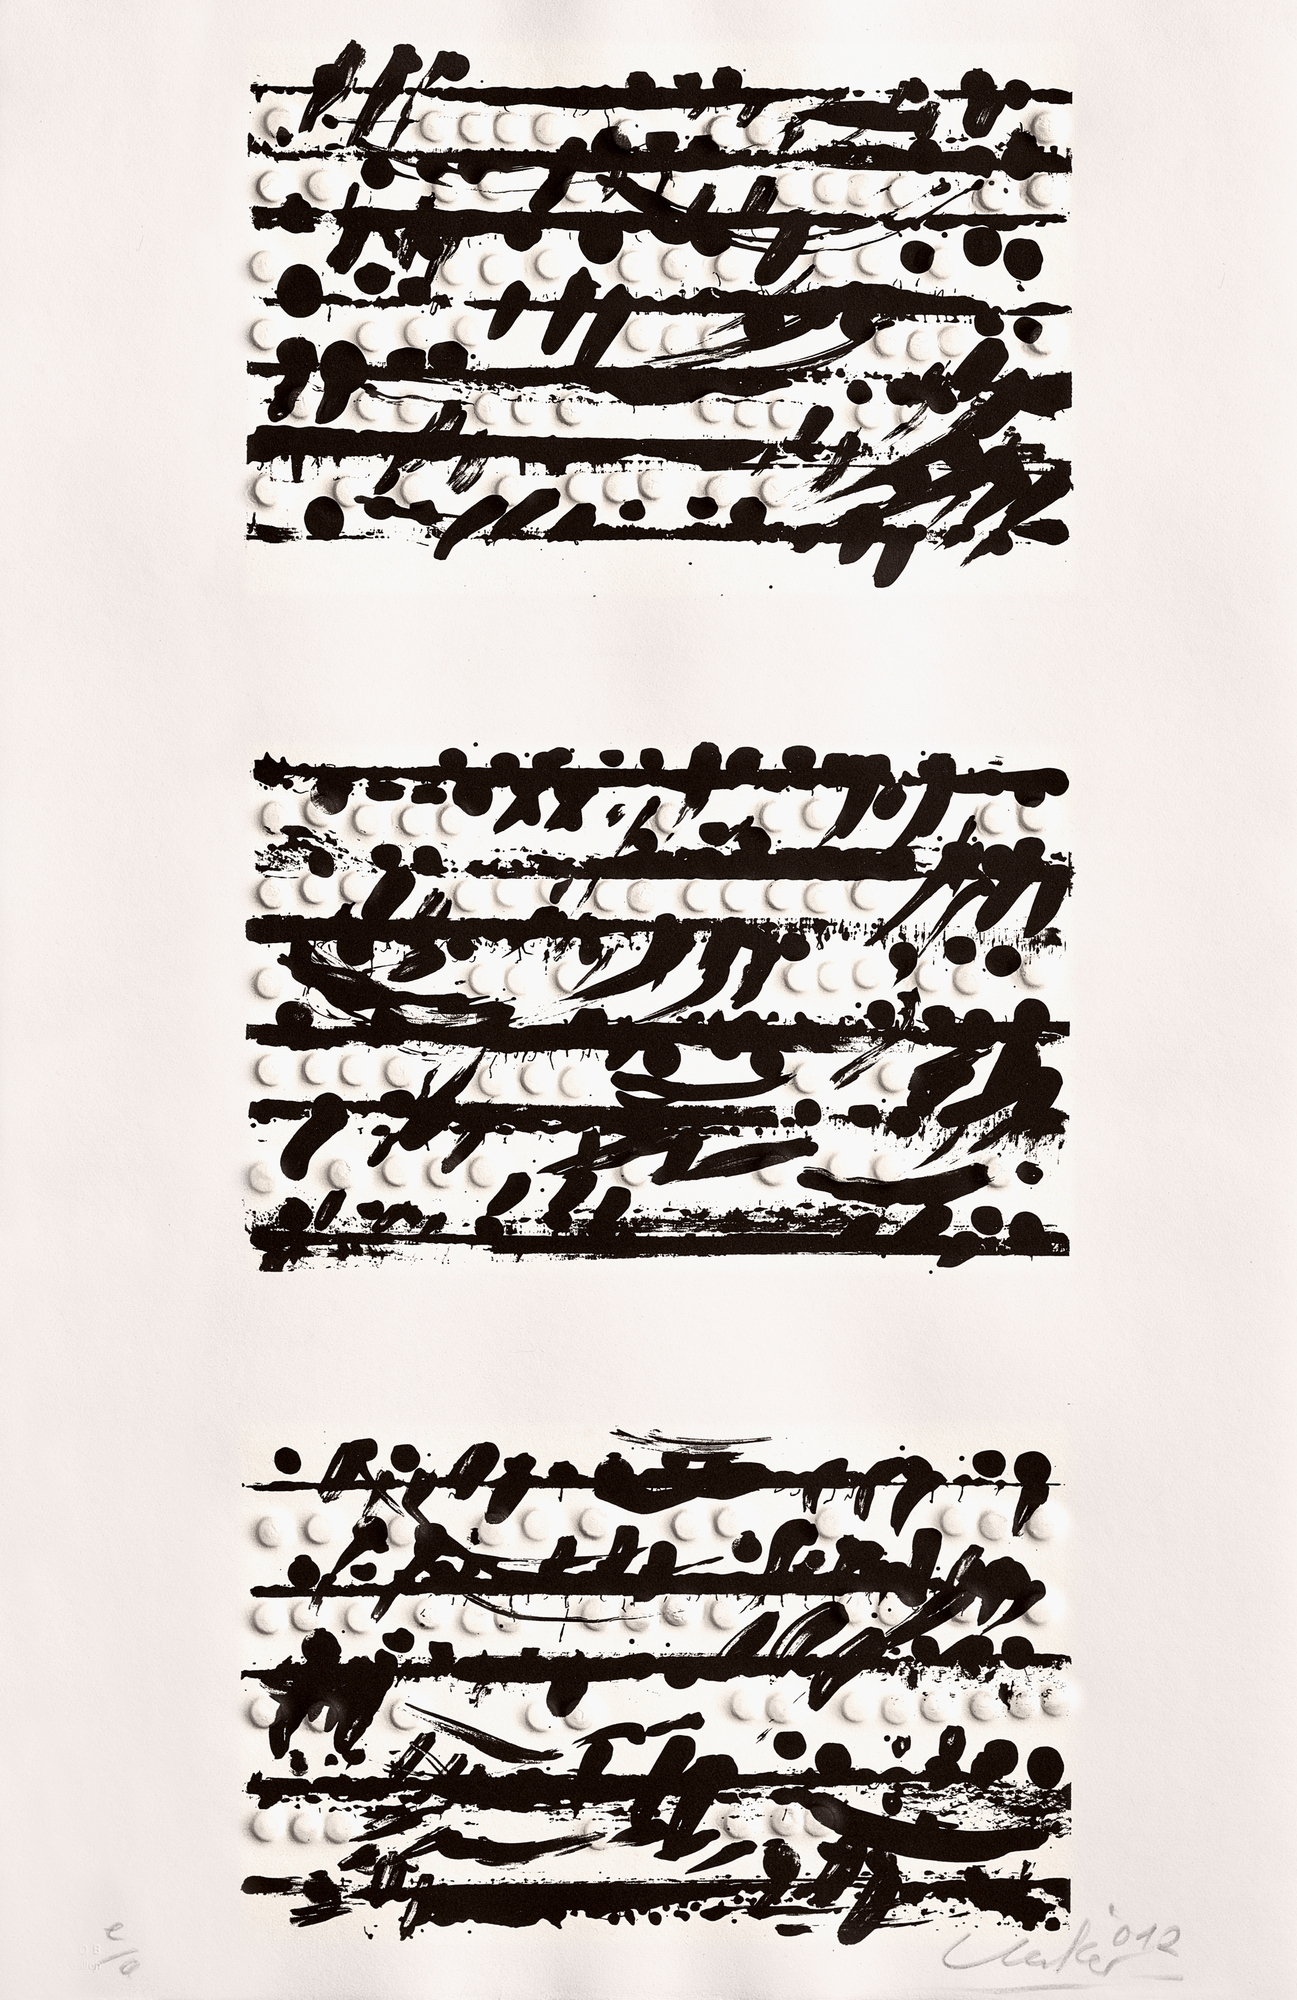 e/a
Uecker '012